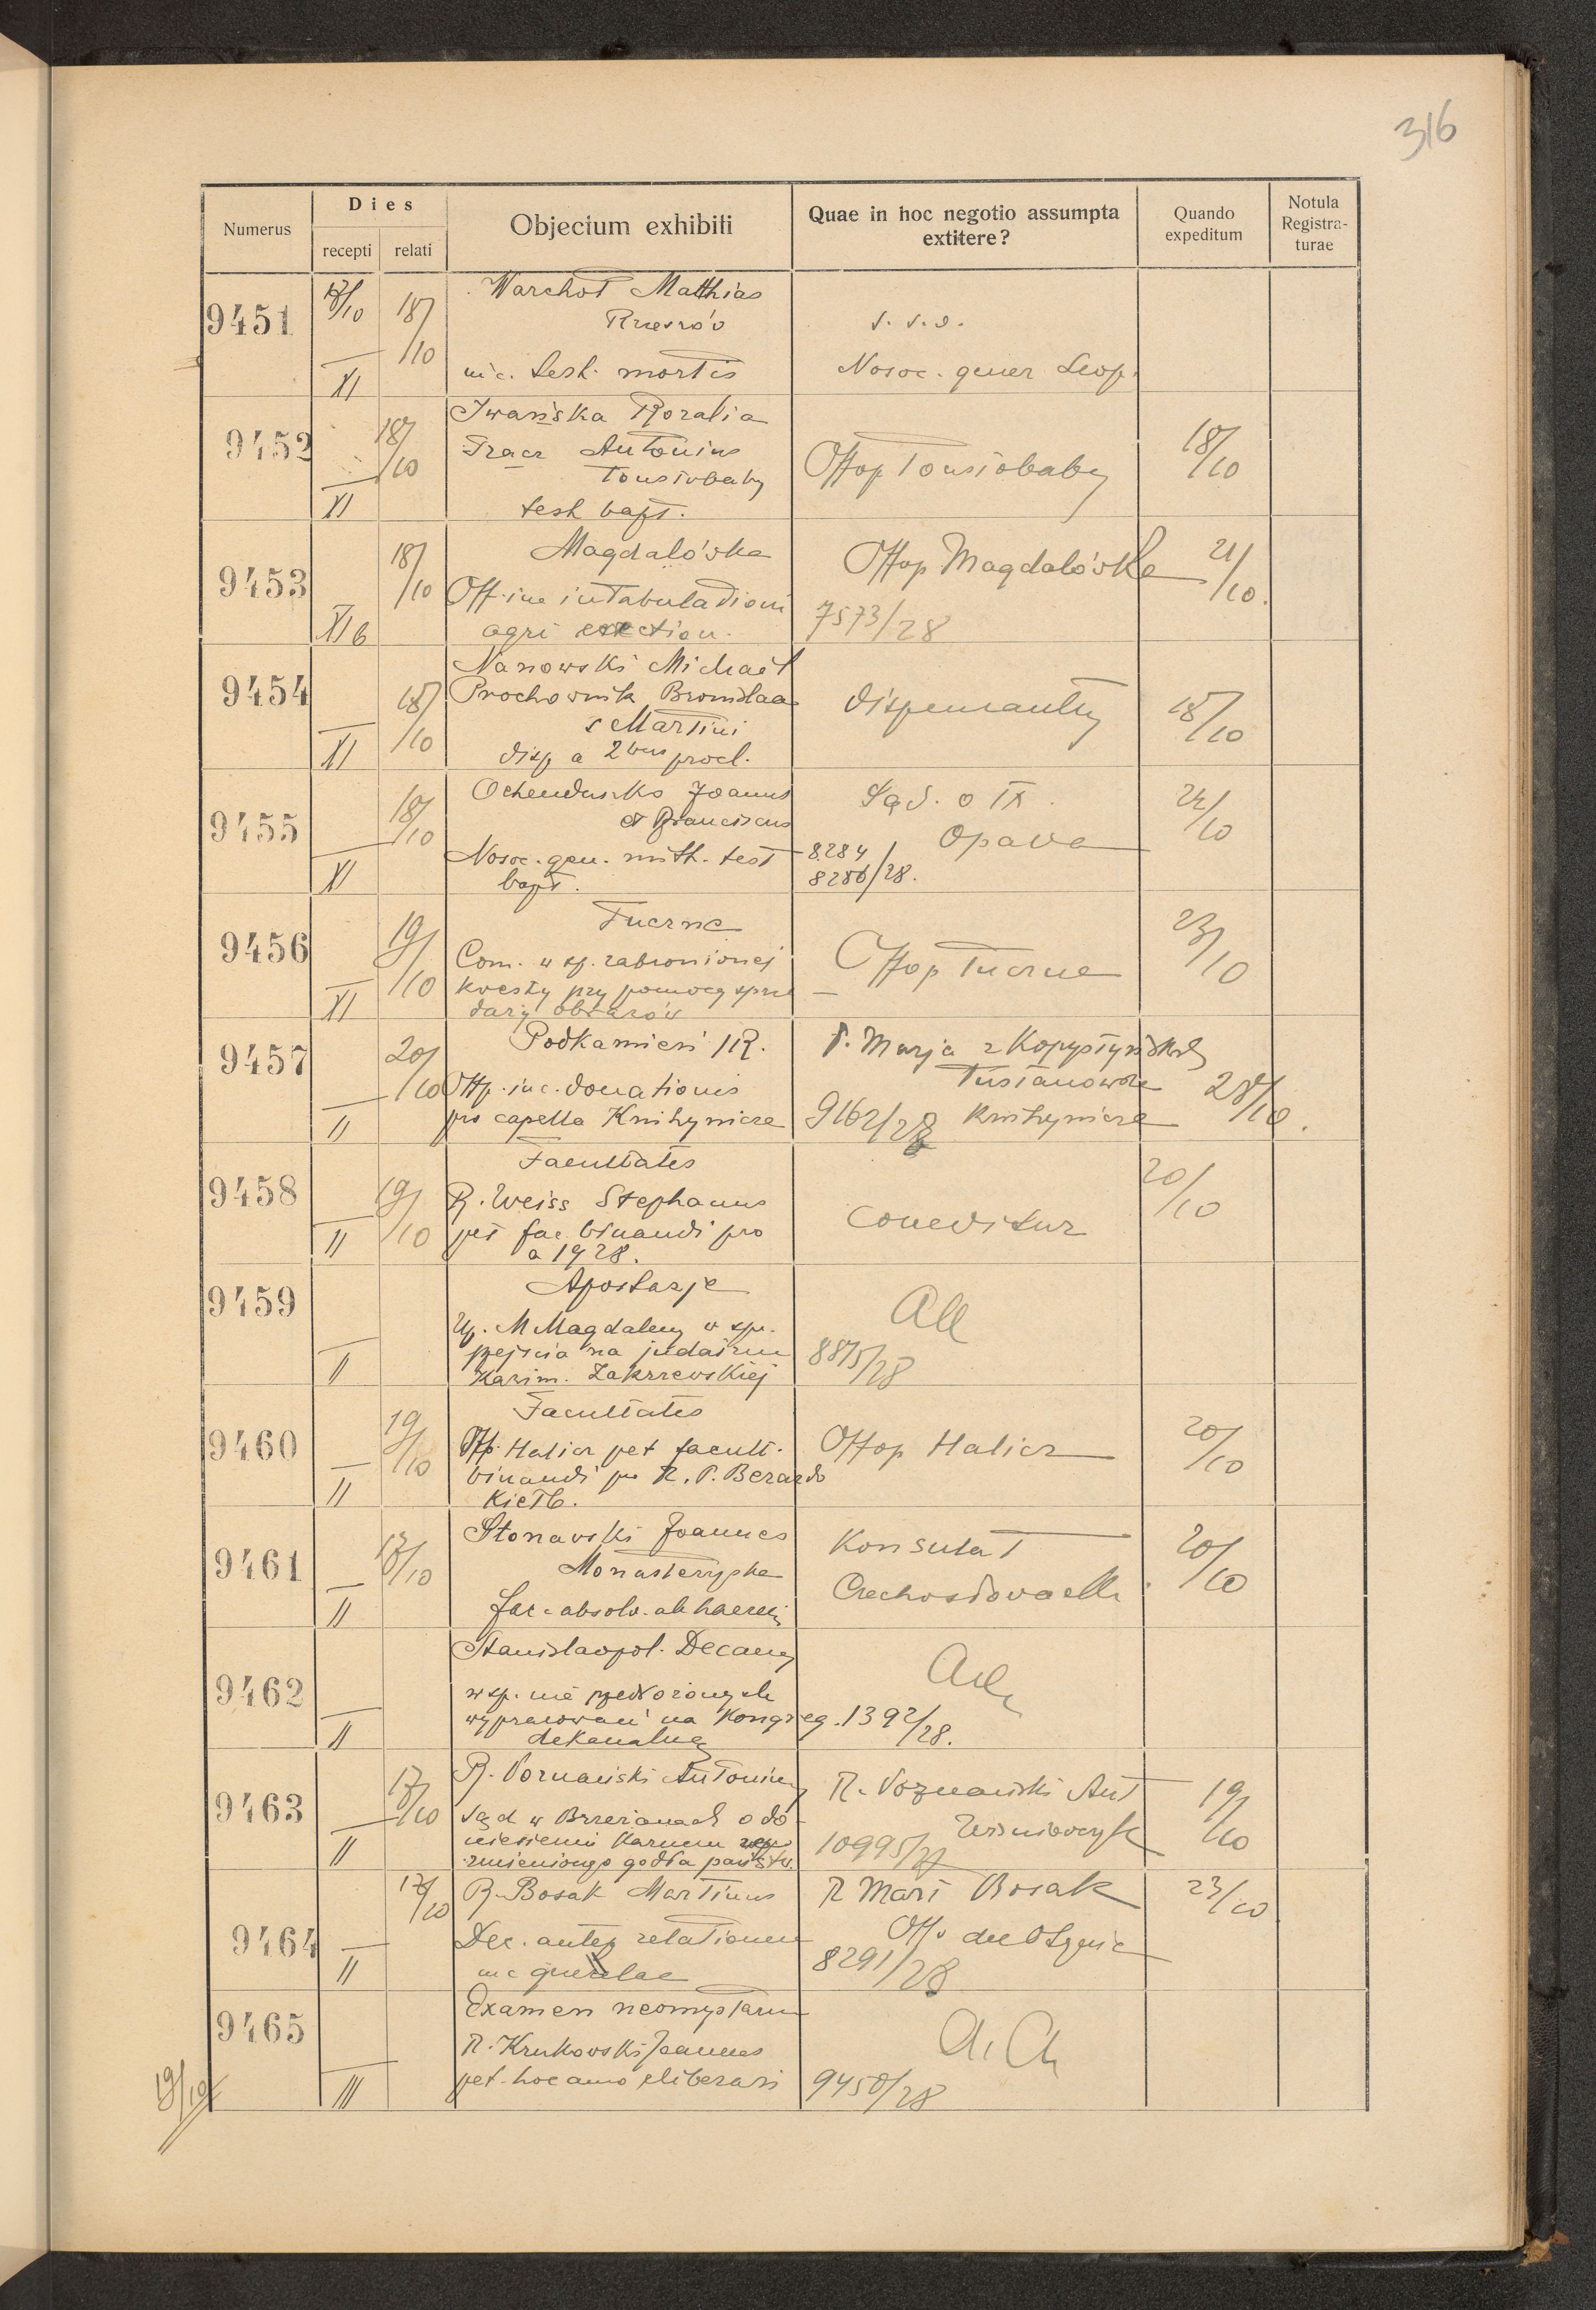 316
Numerus
Dies
recepti
relati
Objecium exhibiti
Quae in hoc negotio assumpta extitere?
Quando expeditum
Notula Registra-turae
9451
18/10
18/10
XI
Warchoł Matthias
Rzeszów
test. mortis
s. s. o.
Nosoc. gener Leop.
9452
18/10
XI
Iwańska Rozalia
Tracz Antonius
Toustobaby
test bapt.
Offop Toustobaby
18/10
9453
18/10
XI b
Magdalówka
Off. inc intabulationi
agri
Offop Magdalówka
7573/28
21/10.
9454
18/10
XI
Nanowski Michael
Prochownik Bronislaa
s Martini
disp a 2bus procl.
dispensantur
18/10
9455
18/10
XI
Ochenduszko Joannes
et Franciscus
Nosoc. gen. mitt. test
bapt.
Sąd. o IX.
Opava
8284
8286/28.
24/10
9456
19/10
XI
Tuczne
Com. w sp. zabronionej
kwesty przy pomocy sprze
daży obrazów
Offop Tuczne
23/10
9457
20/10
II
Podkamień /R.
Offp. inc. donationis
pro capella Knihynicze
P. Marja z Kopystyńskich
Tustanowska
9162/28 Knihynicze
28/10.
9458
19/10
II
Facultates
R. Weiss Stephanus
pet fac. binandi pro
a 1928.
Conceditur
20/10
9459
II
Apostazje
Up. M Magdaleny w spr.
przejścia na judaizm
Kazim. Zakrzewskiej
8875/28
9460
19/10
II
Facultates
Offp. Halicz pet facult.
binandi pro R. P. Berardo
Kiełb.
Offop Halicz
20/10
9461
18/10
II
Stonawski Joannes
Monasterzyska
fac. absolv. ab haeresi
Konsulat
Czechosłowacki
20/10
9462
II
Stanislaopol. Decanus
w sp. nie przedłożonych
wypracowań na Kongreg.
dekanalną
1392/28.
9463
18/10
II
R. Poznański Antonius
Sąd w Brzeżanach o do-
niesieniu karnem
zmienionego godła państw.
R. Poznański Ant
Wiśniowczyk
10995/27
19/10
9464
18/10
II
R. Bosak Martinus
Dec. antep relationem
inc querelae
R Mart Bosak
8291/28
23/10
9465
III
Examen neomystarum
R. Krukowski Joannes
pet. hoc anno eliberari
9450/28
19/10